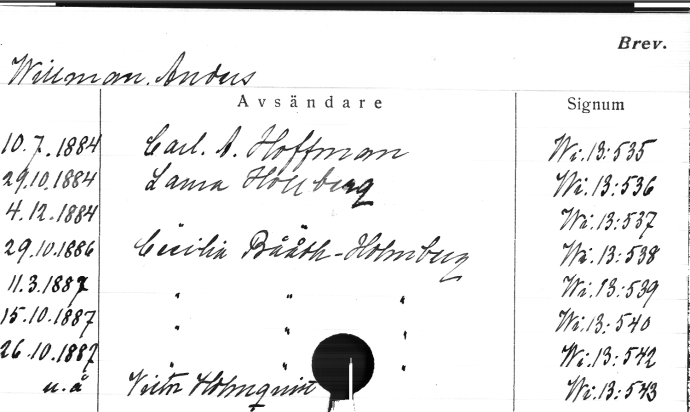 Brev.
Willman. Anders
Avsändare Signum
10.7.1884 Carl. A. Hoffman Wi.13:535
29.10.1884 Laura Wi.13:536
4.12.1884 Wi.13:537
29.10.1886 Cecilia Bååth-Holmberg Wi.13:538
11.3.1887 " " " Wi.13:539
15.10.1887 " " " Wi.13:540
26.10.1887 " " " Wi.13:542
u.å Victor Holmquist Wi.13:543